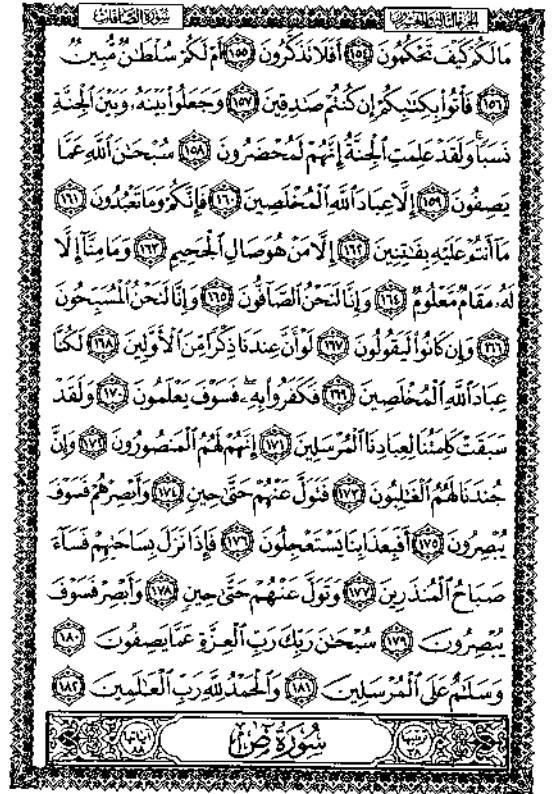 سورة الصافات
الجزء الثالث والعشرون
مَا لَكُمْ كَيْفَ تَحْكُمُونَ ١٥٤ أَفَلَا تَذَكَّرُونَ ١٥٥ أَمْ لَكُمْ سُلْطَٰنٌ مُّبِينٌ
١٥٦ فَأْتُوا۟ بِكِتَٰبِكُمْ إِن كُنتُمْ صَٰدِقِينَ ١٥٧ وَجَعَلُوا۟ بَيْنَهُۥ وَبَيْنَ ٱلْجِنَّةِ
نَسَبًا ۚ وَلَقَدْ عَلِمَتِ ٱلْجِنَّةُ إِنَّهُمْ لَمُحْضَرُونَ ١٥٨ سُبْحَٰنَ ٱللَّهِ عَمَّا
يَصِفُونَ ١٥٩ إِلَّا عِبَادَ ٱللَّهِ ٱلْمُخْلَصِينَ ١٦٠ فَإِنَّكُمْ وَمَا تَعْبُدُونَ ١٦١
مَآ أَنتُمْ عَلَيْهِ بِفَٰتِنِينَ ١٦٢ إِلَّا مَنْ هُوَ صَالِ ٱلْجَحِيمِ ١٦٣ وَمَا مِنَّآ إِلَّا
لَهُۥ مَقَامٌ مَّعْلُومٌ ١٦٤ وَإِنَّا لَنَحْنُ ٱلصَّآفُّونَ ١٦٥ وَإِنَّا لَنَحْنُ ٱلْمُسَبِّحُونَ
١٦٦ وَإِن كَانُوا۟ لَيَقُولُونَ ١٦٧ لَوْ أَنَّ عِندَنَا ذِكْرًا مِّنَ ٱلْأَوَّلِينَ ١٦٨ لَكُنَّا
عِبَادَ ٱللَّهِ ٱلْمُخْلَصِينَ ١٦٩ فَكَفَرُوا۟ بِهِۦ ۖ فَسَوْفَ يَعْلَمُونَ ١٧٠ وَلَقَدْ
سَبَقَتْ كَلِمَتُنَا لِعِبَادِنَا ٱلْمُرْسَلِينَ ١٧١ إِنَّهُمْ لَهُمُ ٱلْمَنصُورُونَ ١٧٢ وَإِنَّ
جُندَنَا لَهُمُ ٱلْغَٰلِبُونَ ١٧٣ فَتَوَلَّ عَنْهُمْ حَتَّىٰ حِينٍ ١٧٤ وَأَبْصِرْهُمْ فَسَوْفَ
يُبْصِرُونَ ١٧٥ أَفَبِعَذَابِنَا يَسْتَعْجِلُونَ ١٧٦ فَإِذَا نَزَلَ بِسَاحَتِهِمْ فَسَآءَ
صَبَاحُ ٱلْمُنذَرِينَ ١٧٧ وَتَوَلَّ عَنْهُمْ حَتَّىٰ حِينٍ ١٧٨ وَأَبْصِرْ فَسَوْفَ
يُبْصِرُونَ ١٧٩ سُبْحَٰنَ رَبِّكَ رَبِّ ٱلْعِزَّةِ عَمَّا يَصِفُونَ ١٨٠
وَسَلَٰمٌ عَلَى ٱلْمُرْسَلِينَ ١٨١ وَٱلْحَمْدُ لِلَّهِ رَبِّ ٱلْعَٰلَمِينَ ١٨٢
ترتيبها ٣٨ سُورَةُ صٓ آياتها ٨٨